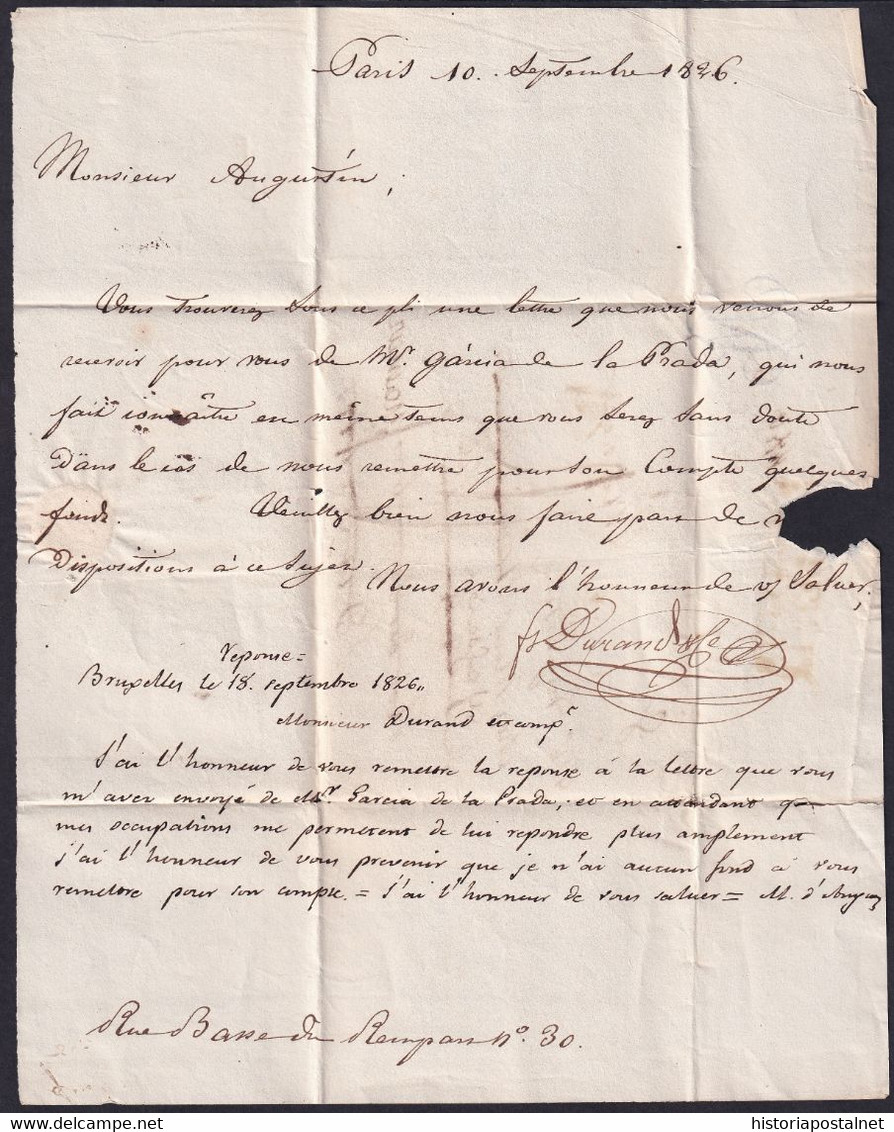 Paris 10. Septembre 1826.
Monsieur Augustin,
Vous trouverez sous ce pli une lettre que nous venons de
recevoir pour vous de Mr. Garcia de la Prada, qui nous
fait connaître en même tems que vous serez sans doute
Dans le cas de nous remettre pour son Compte quelques
fonds. Veuillez bien nous faire part de
Dispositions à ce Sujet.
Nous avons l'honneur de vs Saluer,
Durand & Ce
reponse =
Bruxelles le 18. septembre 1826 "
Monsieur Durand et compe.
J'ai l'honneur de vous remettre la reponse à la lettre que vous
m'avez envoyé de Mr. Garcia de la Prada; et en attendant que
mes occupations me permetent de lui repondre plus amplement
j'ai l'honneur de vous prevenir que je n'ai aucun fond à vous
remettre pour son compte. = J'ai l'honneur de vous saluer = M. d'
Rue Basse du Rempart No. 30.
historiapostalnet